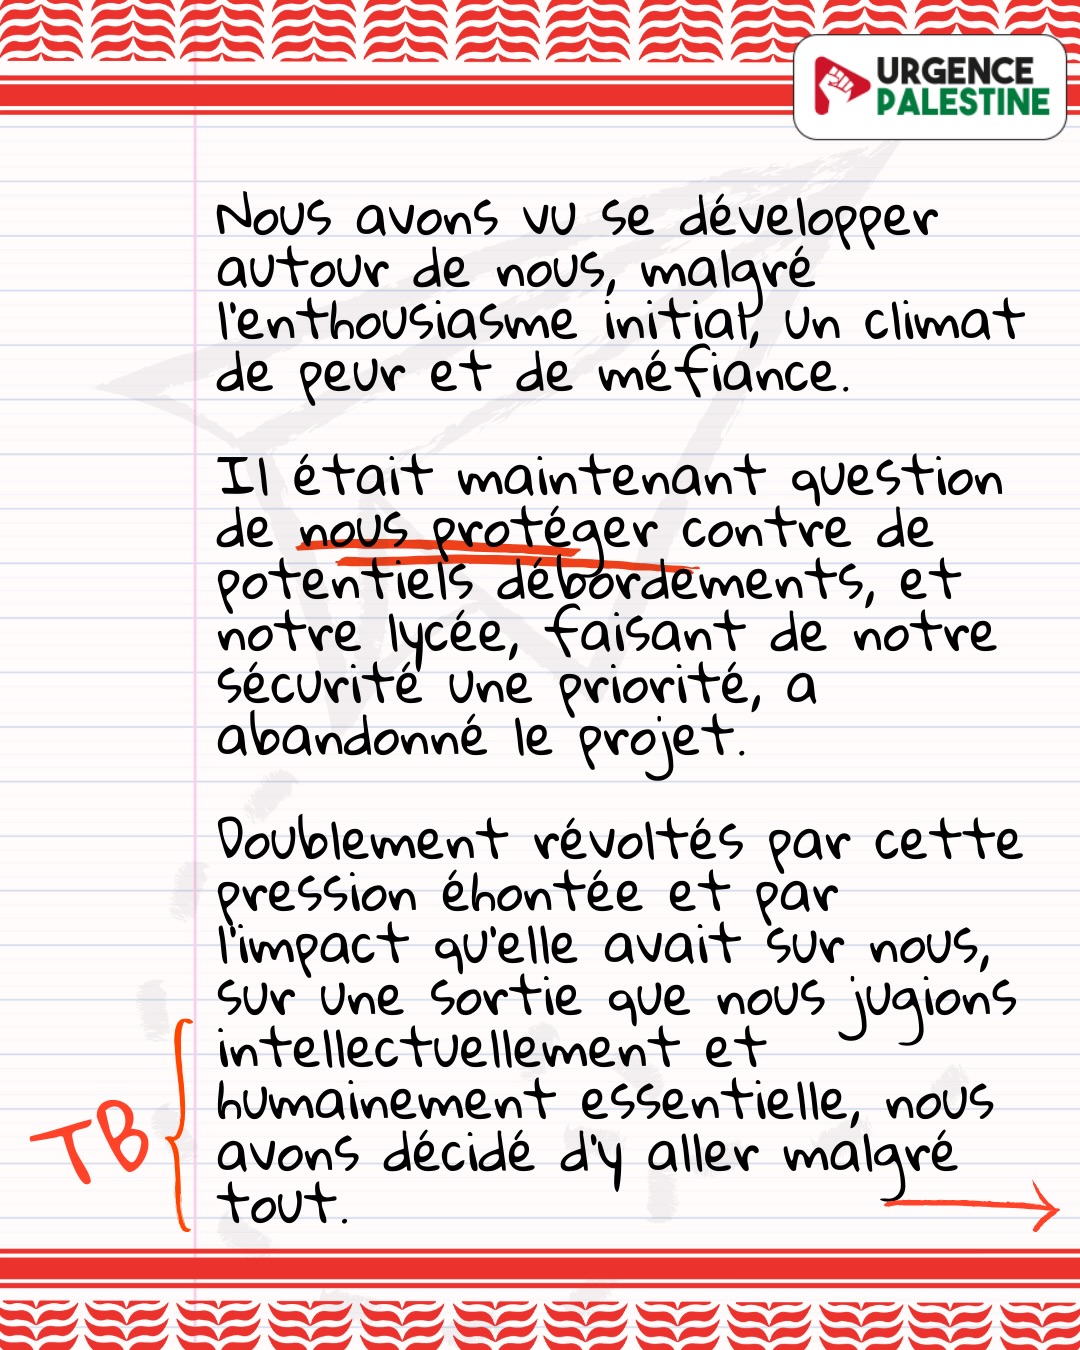 URGENCE
PALESTINE
Nous avons vu se développer
autour de nous, malgré
l'enthousiasme initial, un climat
de peur et de méfiance.
Il était maintenant question
de nous protéger contre de
potentiels débordements, et
notre lycée, faisant de notre
sécurité une priorité, a
abandonné le projet.
Doublement révoltés par cette
pression éhontée et par
l'impact qu'elle avait sur nous,
sur une sortie que nous jugions
intellectuellement et
humainement essentielle, nous
avons décidé d'y aller malgré
tout.
TB